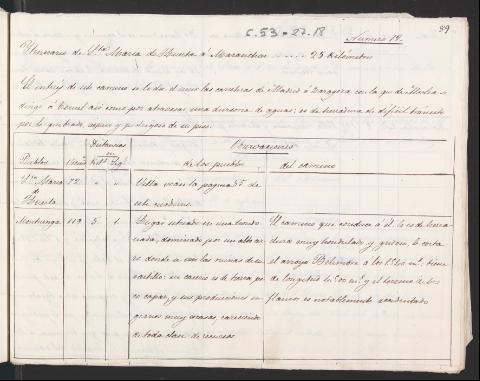 89
C.53-27.18
Número 19.
Itinerario de Sta. Maria de Huerta á Maranchon ..... 25 Kilómetros
El interés de este camino es lo da el unir las carreteras de Madrid á Zaragoza con la que de Alcolea se
dirige á Teruel así como por atravesar una divisoria de aguas; es de herradura de difícil tránsito
por lo quebrado, áspero y pedregoso de su piso.
Pueblos Vecinos Distancias en Kils. Leg. Observaciones
de los pueblos del camino
Sta. Maria 72 " " Villa, véase la página 35 de
de este cuaderno.
Huerta
Montuenga 119 5 1 Lugar situado en una hondo- El camino que conduce á él, lo es de herra-
nada, dominado por un alto cerro dura muy hondulado y
donde se ven las ruinas de un el arroyo
castillo: su caserío es de tierra, po- de longitud y el terreno de los
co capaz, y sus producciones en flancos es notablemente accidentado
granos muy escasas, careciendo
de toda clase de recursos